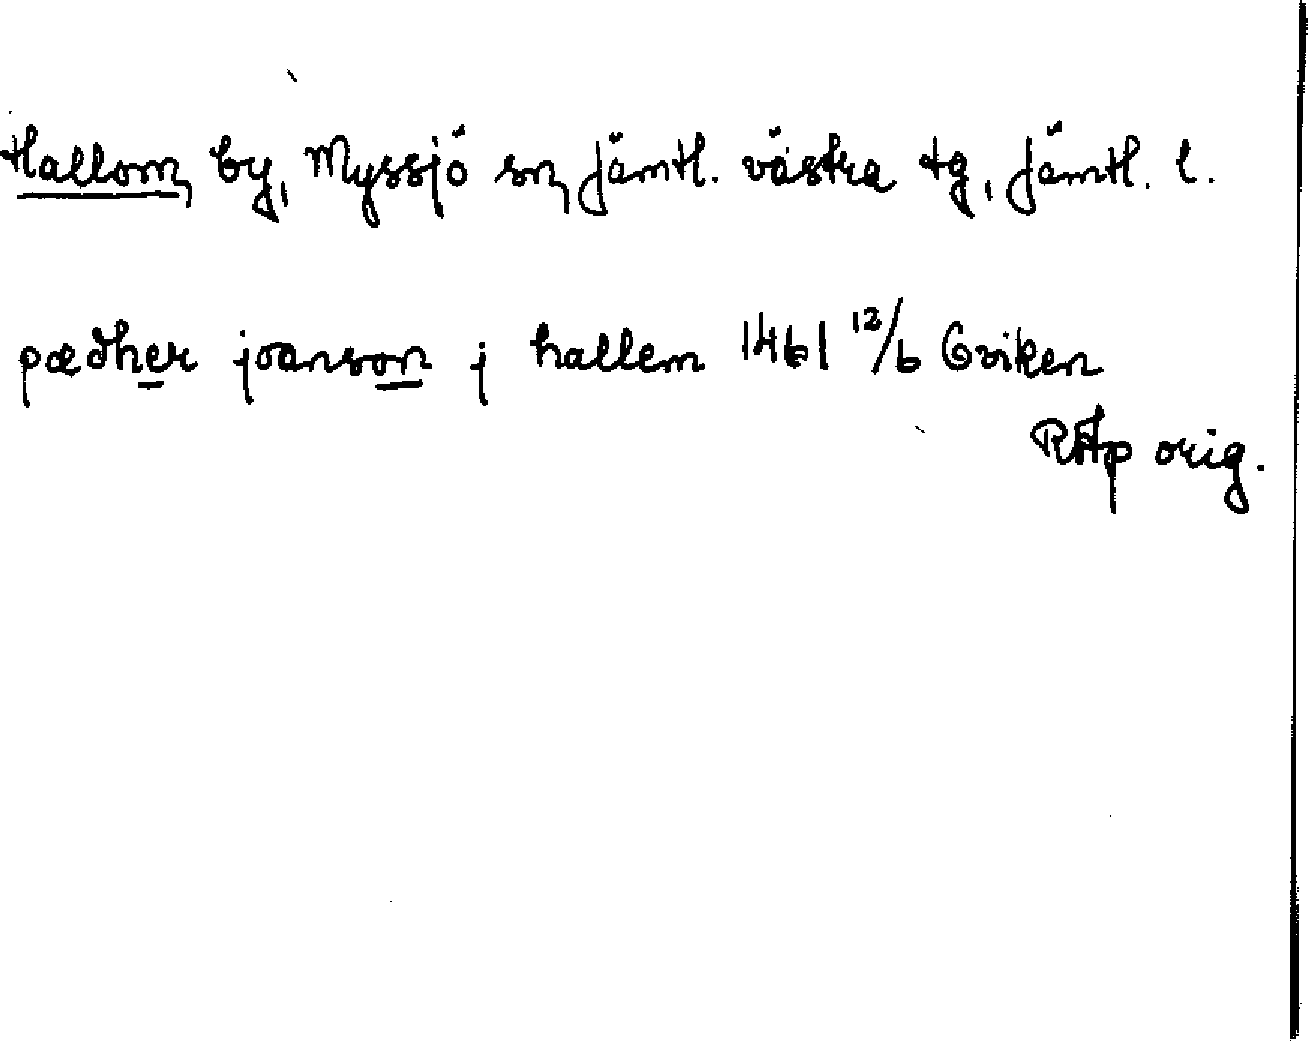 Hallom, by, Myssjö sn, Jämtl. västra tg, Jämtl. l.
pædher joanson j hallem 1461 12/6 Oviken
RAp orig.